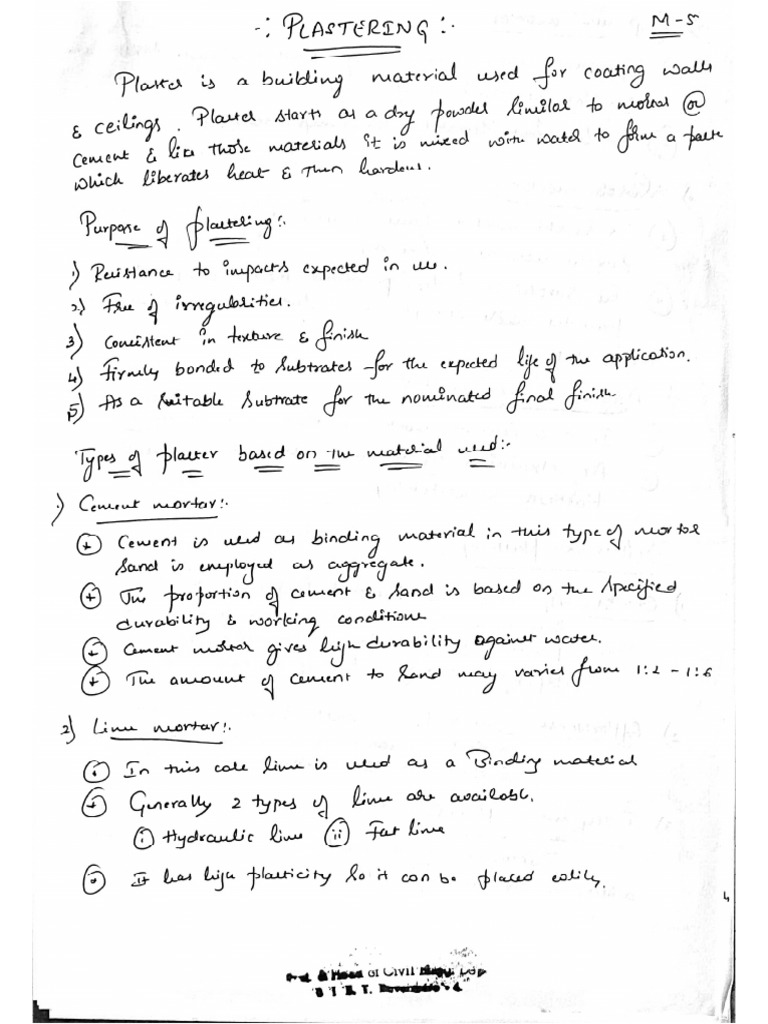 -: PLASTERING :-
M-5
Plaster is a building material used for coating walls
& ceilings. Plaster starts as a dry powder similar to mortar or
cement & like those materials it is mixed with water to form a paste
which liberates heat & then hardens.
Purpose of plastering:-
1) Resistance to impacts expected in use.
2) Free of irregularities.
3) Consistent in texture & finish
4) Firmly bonded to substrates for the expected life of the application.
5) As a suitable substrate for the nominated final finish
Types of plaster based on the material used:-
1) Cement mortar:-
Cement is used as binding material in this type of mortar
sand is employed as aggregate.
The proportion of cement & sand is based on the specified
durability & working conditions
Cement mortar gives high durability against water.
The amount of cement to sand may varies from 1:2 - 1:6
2) Lime mortar:-
In this case lime is used as a Binding material
Generally 2 types of lime are available.
i Hydraulic lime ii Fat lime
It has high plasticity so it can be placed easily.
4
& Head of Civil